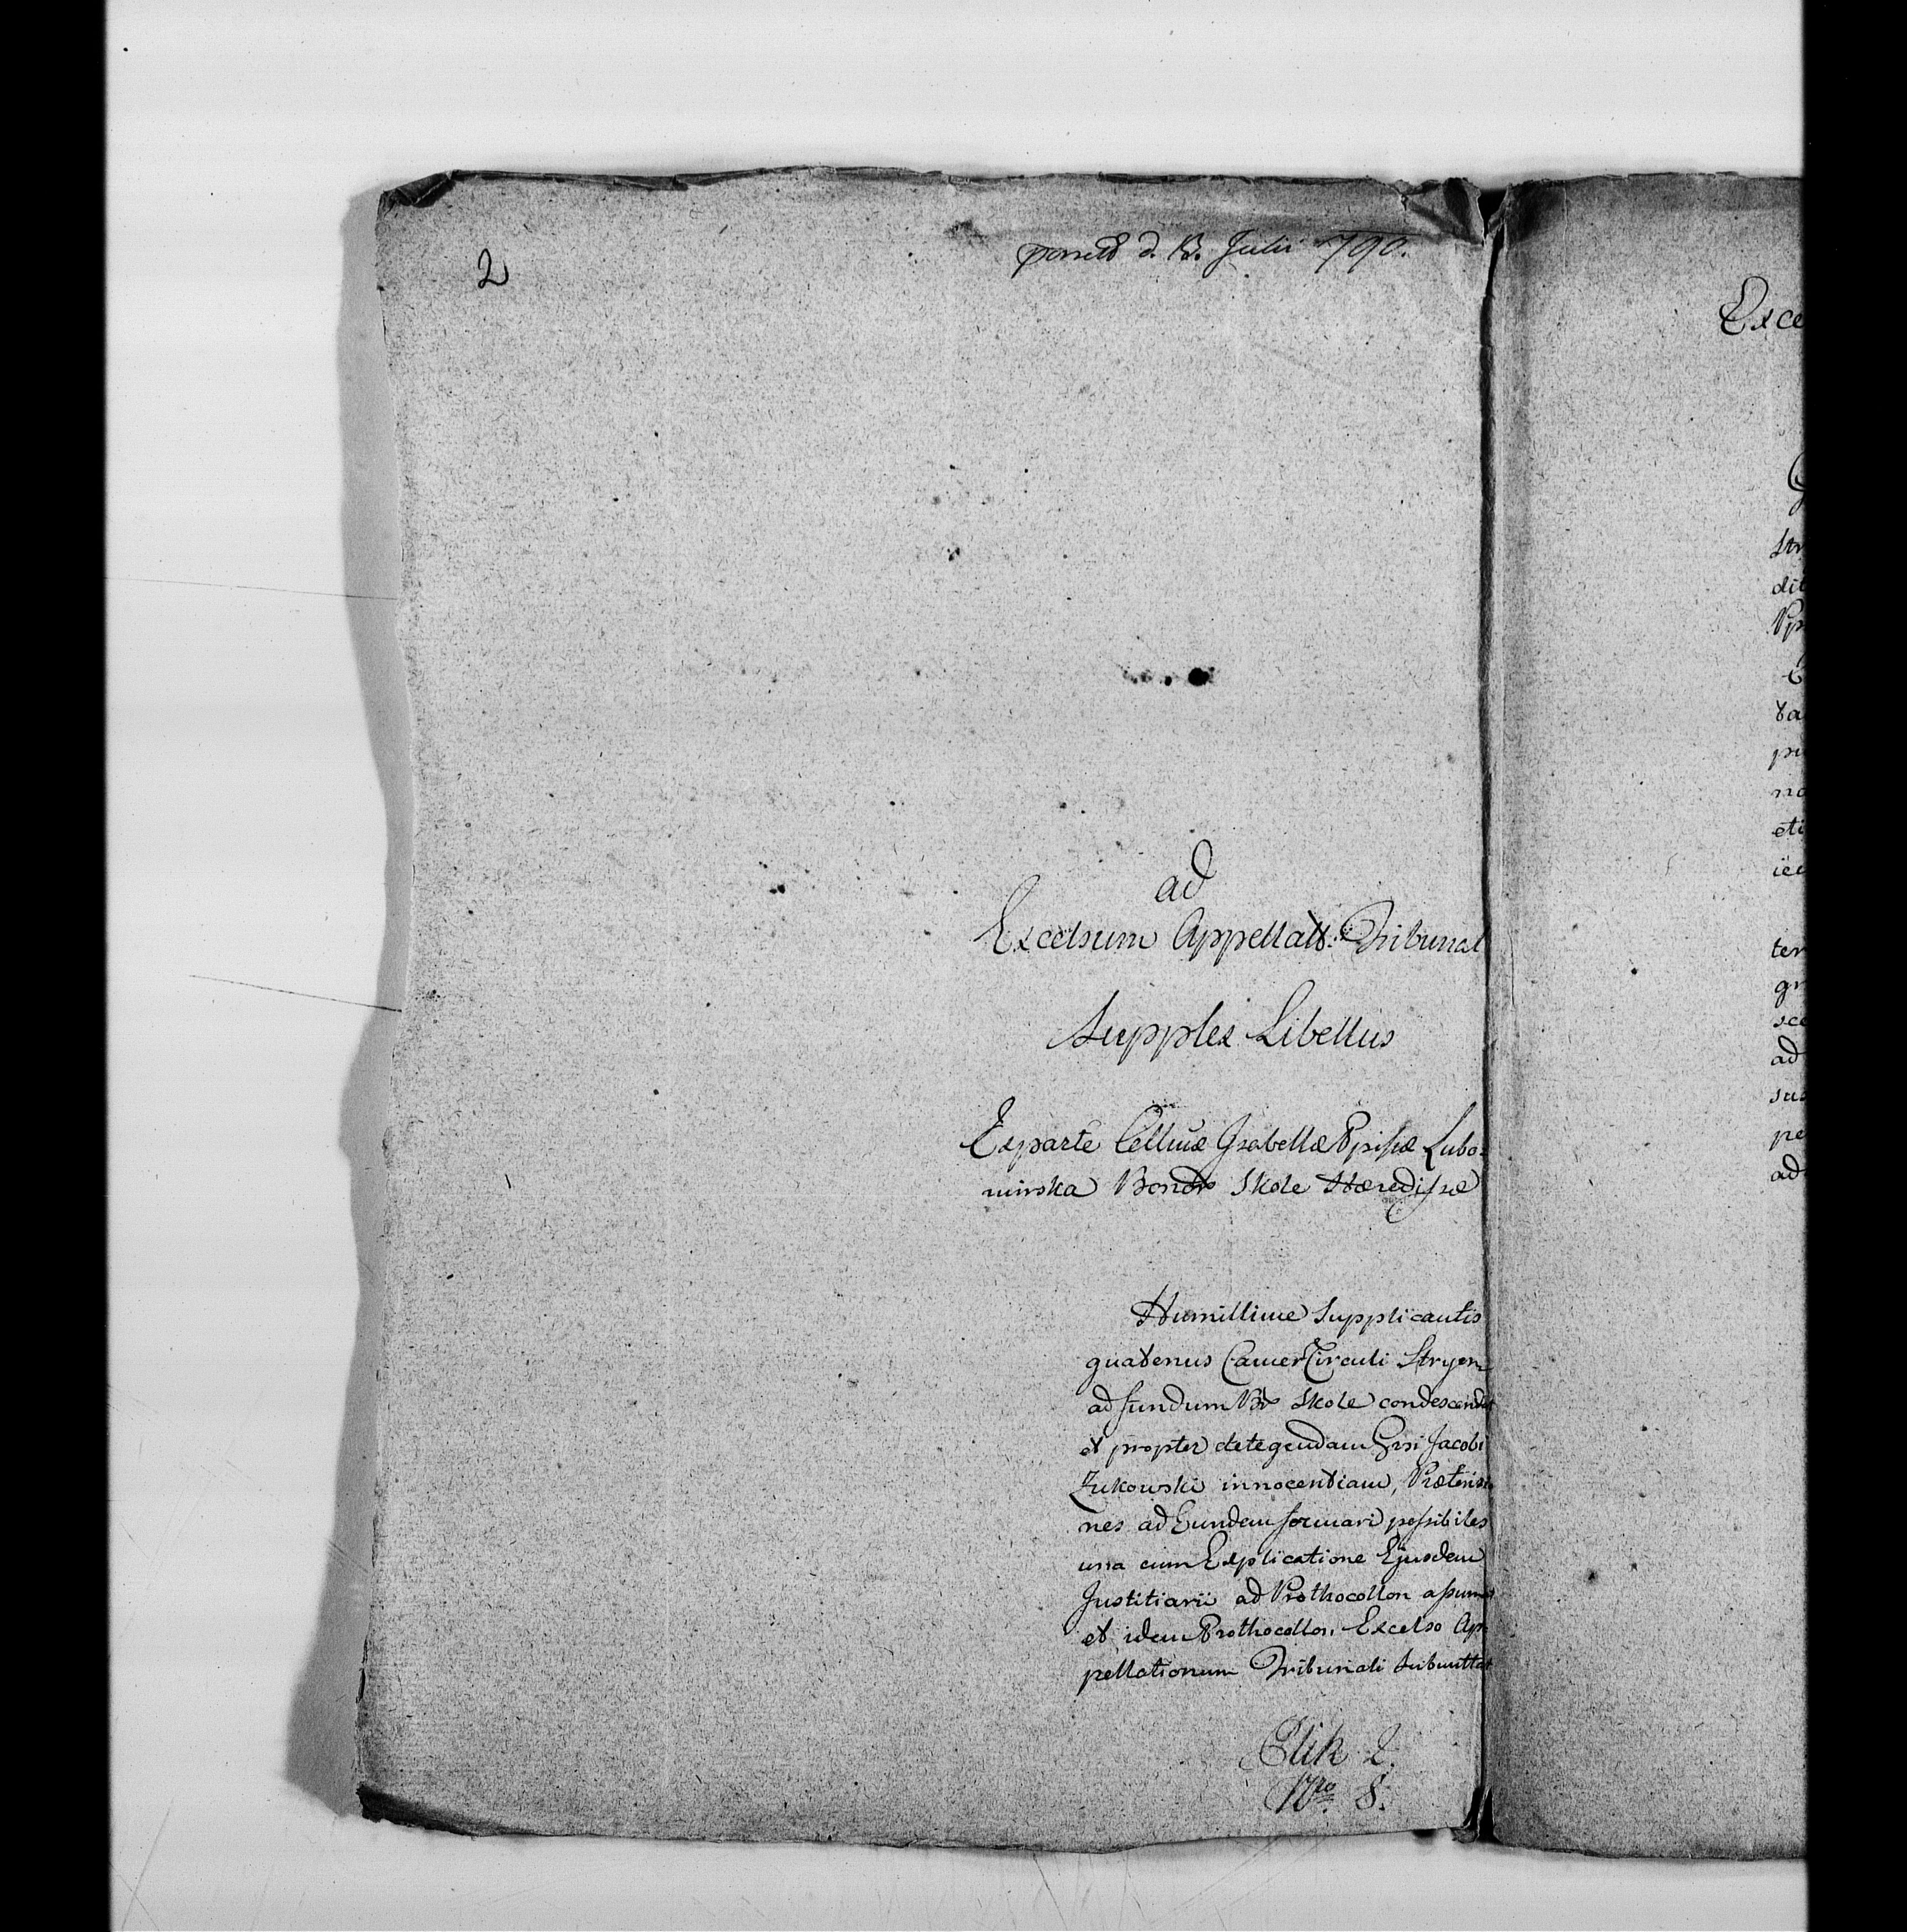 2
d. 13. Julii 790.
ad
Excelsum Appellat: Tribunal
Supplex Libellus
Exparte Cellmæ Isabellæ Ppissæ Lubo-
mirska Bonor Skole Hæredissæ
Humillime Supplicantis
quatenus Camer Circuli Stryen
ad fundum Br Skole condescendat
et propter detegendam Grsi Jacobi
Zukowski innocentiam, Prætensio
nes ad Eundem formari possibiles
una cum Explicatione Ejusdem
Justitiarii ad Prothocollon assumat
et idem Prothocollon Excelso Ap-
pellationum Tribunali submittat
Plik 2.
Nro 8.
Exce
Str
dit
Vpr
ta
pu
no
eti
iec
ter
gr
sce
ad
sus
pe
ad